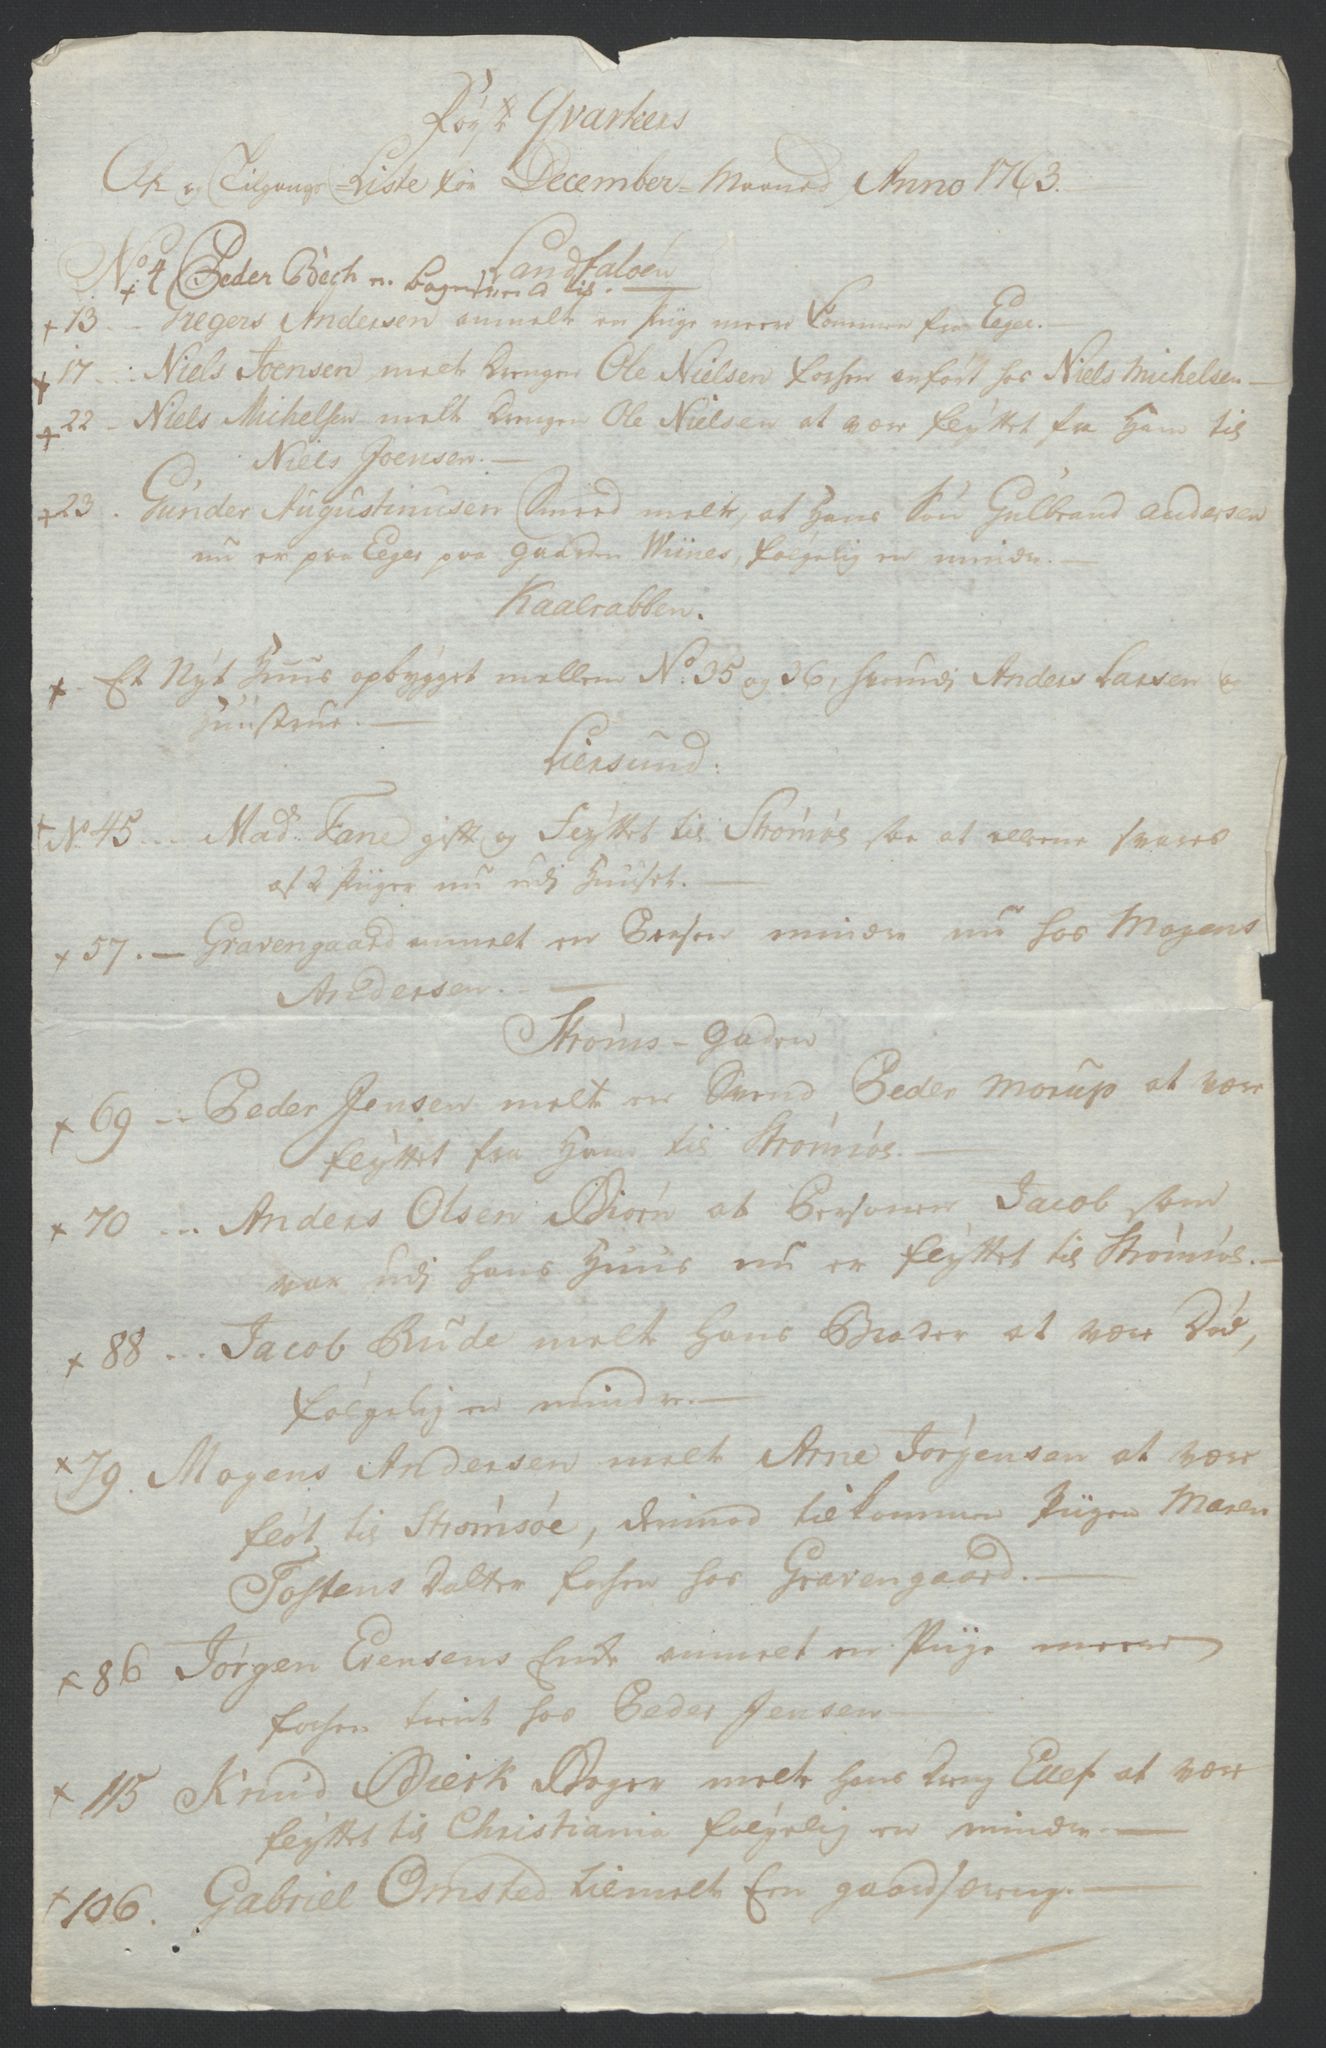 Qvarteers
Af og Tilgangs Liste for December Maaned Anno 1763.
Landfaløen
No 4 Peder Bech en bagersvend til.
+ 13 - Tregers Andersen anmelt en Piige meere kommen fra Eeger.
+ 17 - Niels Joensen melt drengen Ole Nielsen forhen anført hos Niels Michelsen
+ 22 - Niels Michelsen melt drengen Ole Nielsen at være flÿttet fra ham til
Niels Joensen.
+ 23. Gunder Augustinusen Smed melt, at hans Søn Gulbrand andersen
nu er paa Eeger paa gaarden Wiines, følgelig en mindre.
Kaalrabben.
+ Et Nÿt Huus opbÿgget mellem No. 35 og 36, hvorudi Anders Larsen og
Huustrue.
Liersund.
+ No. 45 - Mad. Fane gift og flÿttet til Strømsøe saa at allene svares
af 2 Piiger nu udi Huuset.
+ 57. - Gravengaard anmelt en Person mindre nu hos Mogens
Andersen.
Strøms-gaden
+ 69 - Peder Jensen melt en Svend Peder Morup at være
flÿttet fra ham til Strømsøe.
+ 70 - Anders Olsen Biørn at Personen Jacob som
var udi hans Huus nu er flÿttet til Strømsøe.
+ 88 - Jacob Rude melt hans Broder at være Død,
følgelig en mindre.
+ 79. Mogens Andersen melt Arne Jørgensen at være
fløt til Strømsøe, derimod tilkommen Piigen Maren
Tostens Datter forhen hos Gravengaard.
+ 86 Jørgen Evensens Enke anmelt en Piige meere
forhen tient hos Peder Jensen
+ 115 Knud Bierk Bager melt hans dreng Ellef at være
flÿttet til Christiania følgelig en mindre.
+ 106. Gabriel Omsted tilmelt Een gaardsdreng.